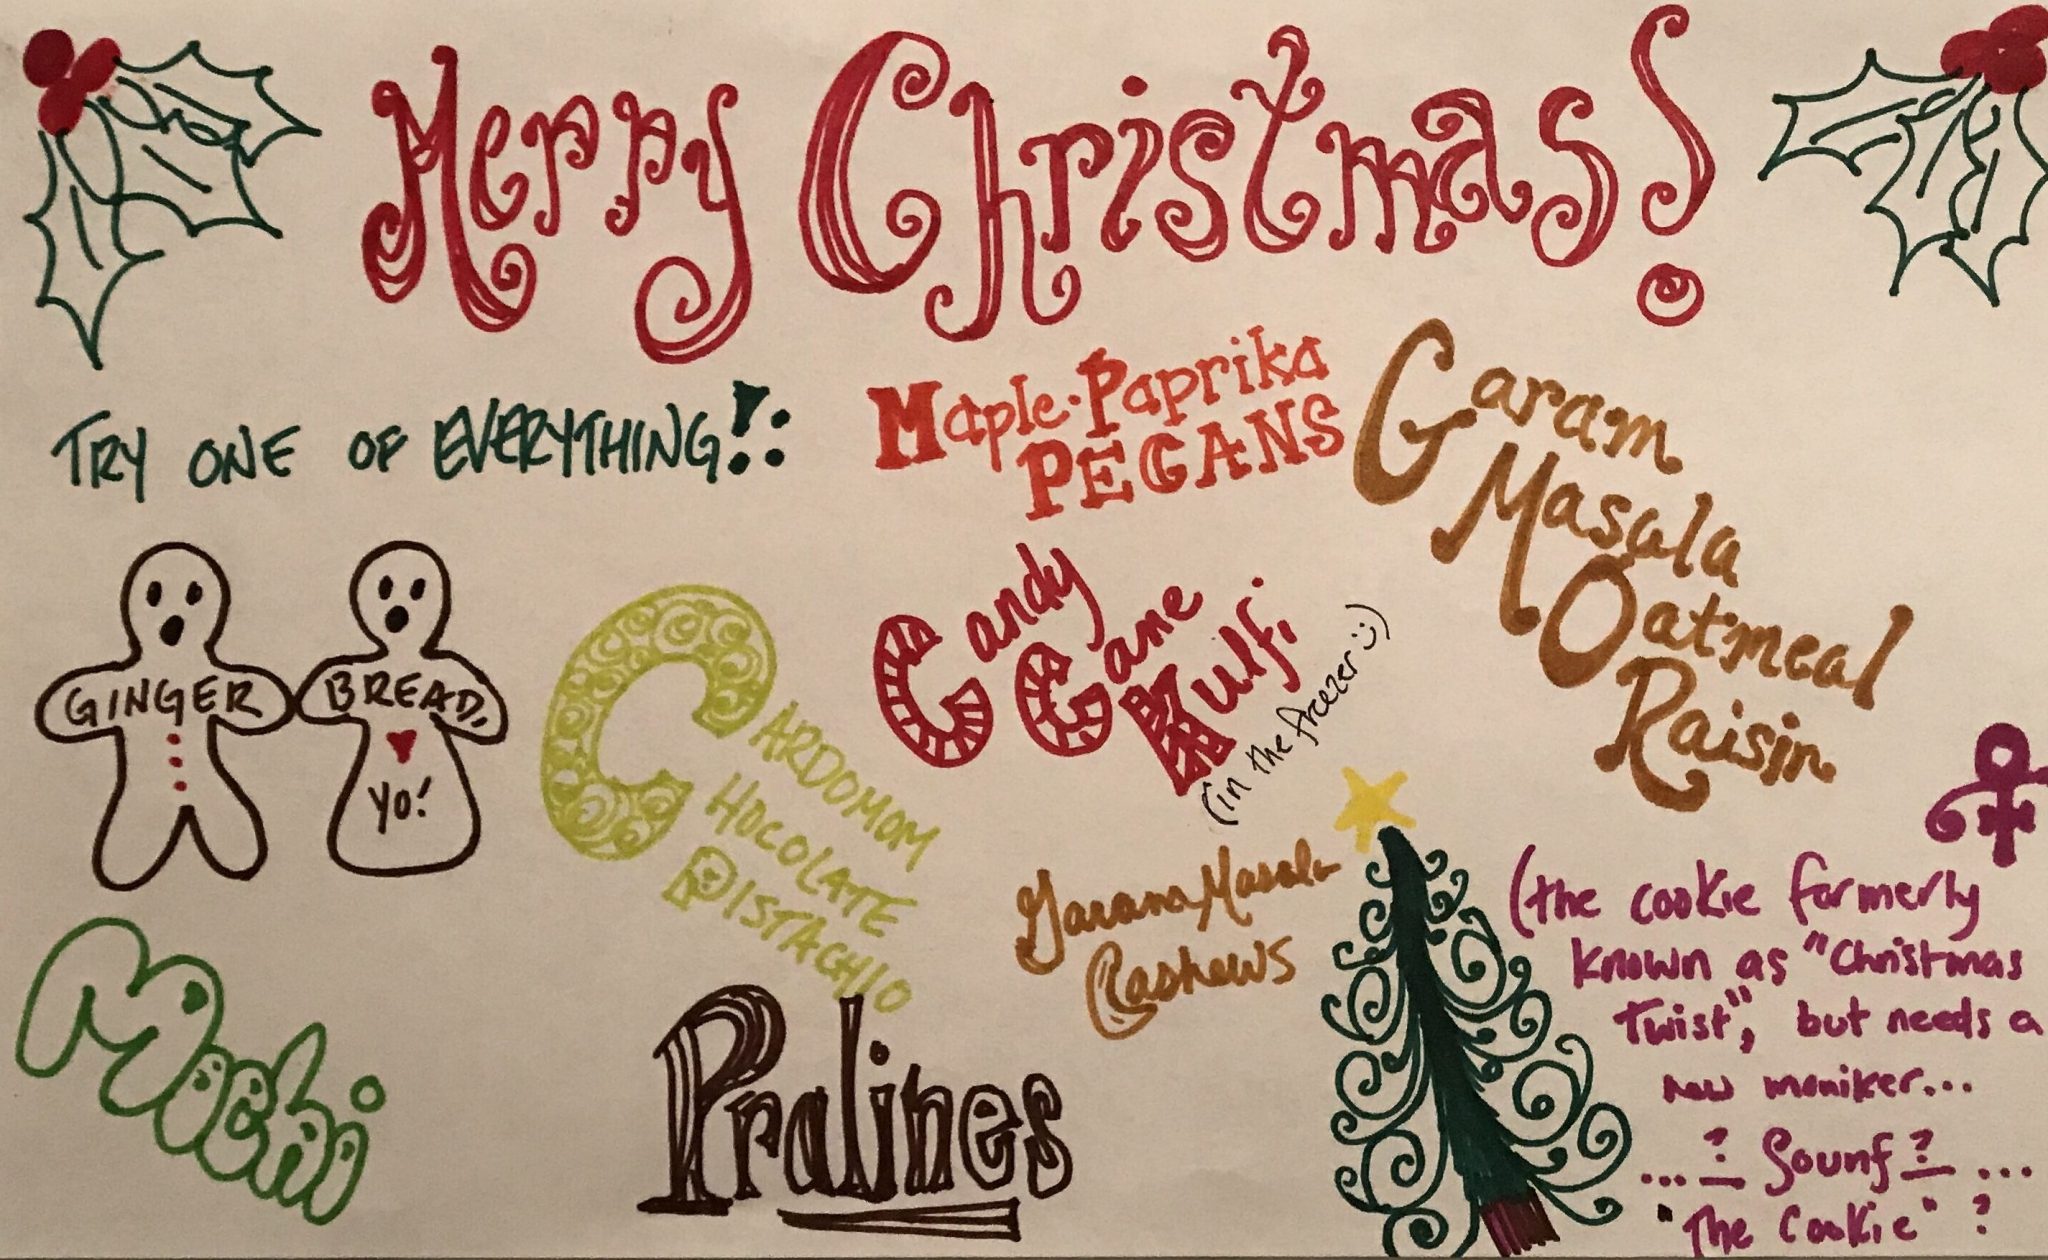 Merry Christmas!
TRY ONE OF EVERYTHING!:
Maple-Paprika
PECANS
Garam
Masala
Oatmeal
Raisin
GINGER
BREAD,
YO!
CARDOMOM
CHOCOLATE
PISTACHIO
Candy
Cane
Kulfi
(in the freezer :))
Garam Masala
Cashews
Mochi
Pralines
(the cookie formerly
known as "Christmas
Twist", but needs a
new moniker...
...? Sounf ? ...
"The Cookie" ?